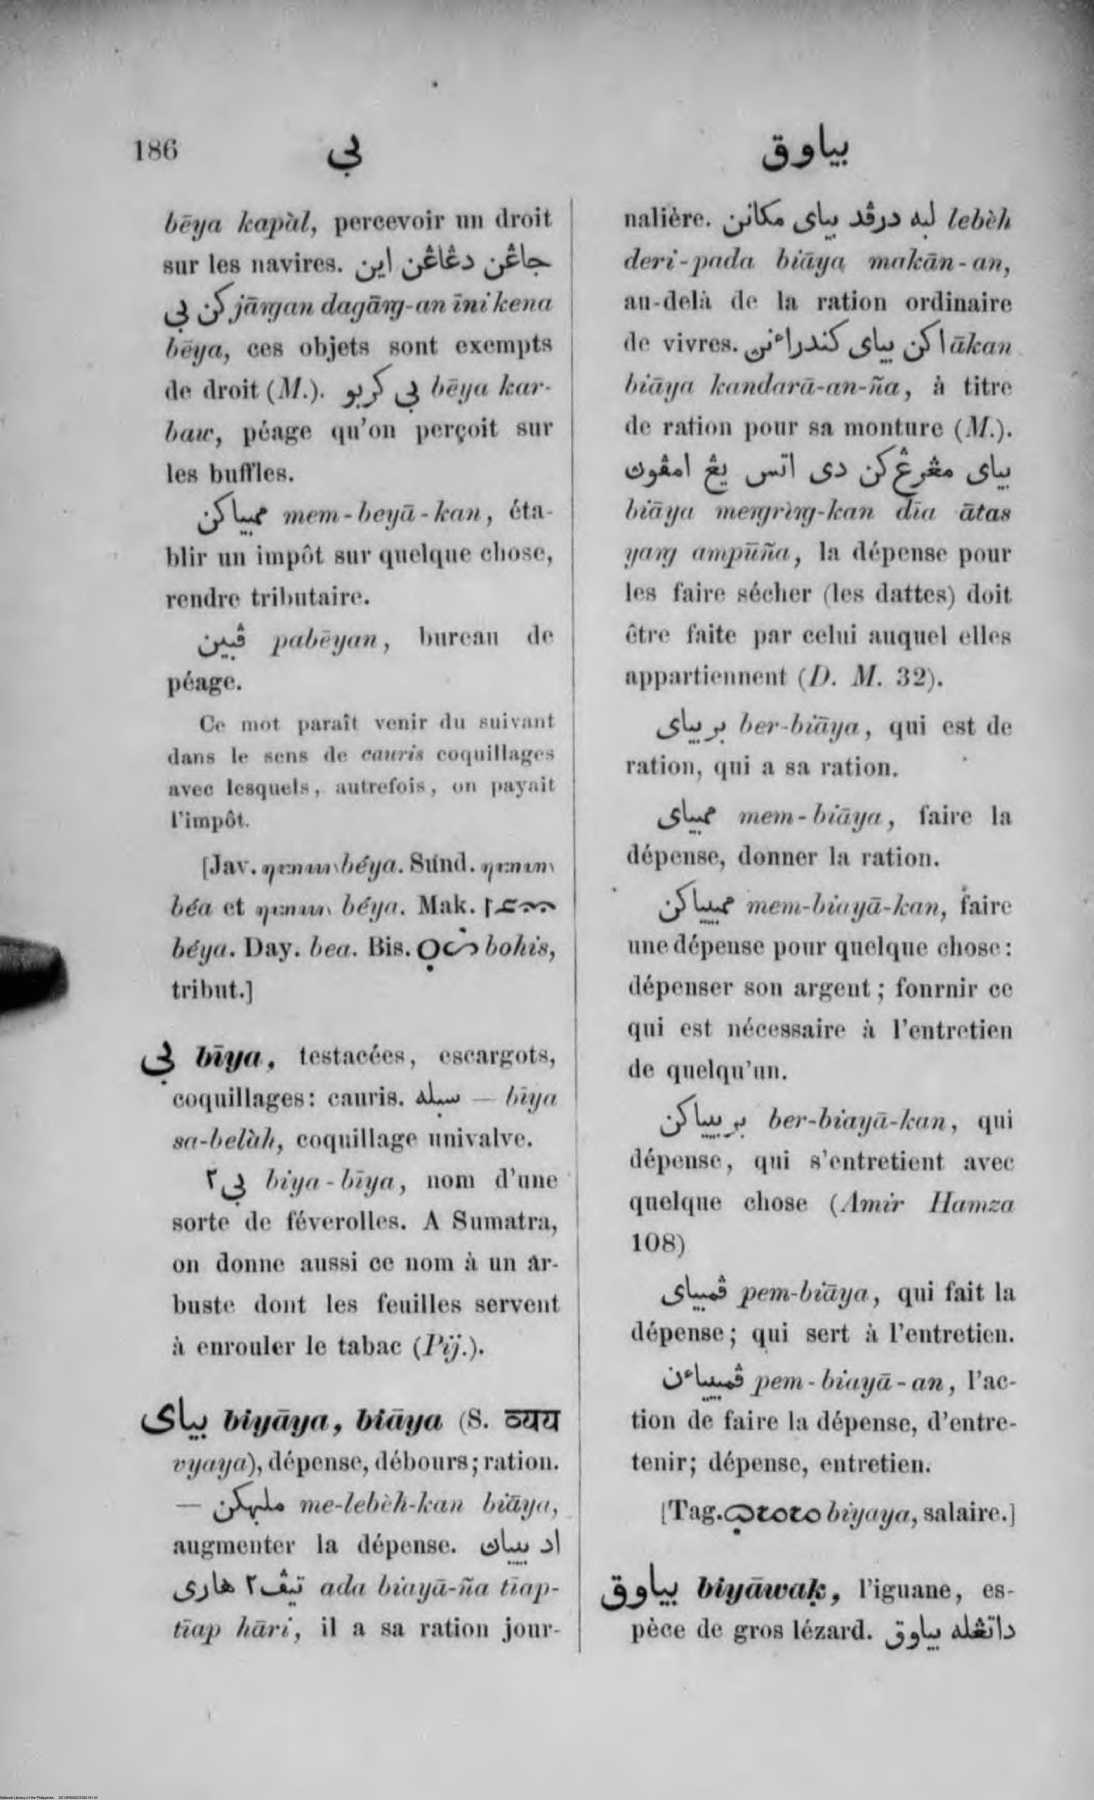 186
بي
بياوق
bēya kapàl, percevoir un droit
sur les navires. جاڠن دڠاڠن اين
كن بي jāṅgan dagāṅg-an īni kena
bēya, ces objets sont exempts
de droit (M.). بي كربو bēya kar-
baw, péage qu'on perçoit sur
les buffles.
ممبياكن mem-beyā-kan, éta-
blir un impôt sur quelque chose,
rendre tributaire.
ڤبين pabēyan, bureau de
péage.
Ce mot paraît venir du suivant
dans le sens de cauris coquillages
avec lesquels, autrefois, on payait
l'impôt.
[Jav. béya. Sund.
béa et béya. Mak.
béya. Day. bea. Bis. bohis,
tribut.]
بي bīya, testacées, escargots,
coquillages: cauris. سبله — bīya
sa-belàh, coquillage univalve.
بي٢ biya-bīya, nom d'une
sorte de féverolles. A Sumatra,
on donne aussi ce nom à un ar-
buste dont les feuilles servent
à enrouler le tabac (Pij.).
بياي biyāya, biāya (S. व्यय
vyaya), dépense, débours; ration.
— ملبهكن me-lebèh-kan biāya,
augmenter la dépense. اد بياڽ
تيڤ٢ هاري ada biayā-ña tīap-
tīap hāri, il a sa ration jour-
nalière. لبه درڤد بياي مكانن lebèh
deri-pada biāya makān-an,
au-delà de la ration ordinaire
de vivres. اكن بياي كندراءنڽ ākan
biāya kandarā-an-ña, à titre
de ration pour sa monture (M.).
بياي مڠرڠكن دي اتس يڠ امڤوڽ
biāya meṅgrìṅg-kan dīa ātas
yaṅg ampūña, la dépense pour
les faire sécher (les dattes) doit
être faite par celui auquel elles
appartiennent (D. M. 32).
بربياي ber-biāya, qui est de
ration, qui a sa ration.
ممبياي mem-biāya, faire la
dépense, donner la ration.
ممبياكن mem-biayā-kan, faire
une dépense pour quelque chose:
dépenser son argent; fonrnir ce
qui est nécessaire à l'entretien
de quelqu'un.
بربياكن ber-biayā-kan, qui
dépense, qui s'entretient avec
quelque chose (Amir Hamza
108)
ڤمبياي pem-biāya, qui fait la
dépense; qui sert à l'entretien.
ڤمبياءن pem-biayā-an, l'ac-
tion de faire la dépense, d'entre-
tenir; dépense, entretien.
[Tag. biyaya, salaire.]
بياوق biyāwaḳ, l'iguane, es-
pèce de gros lézard. داتڠله بياوق